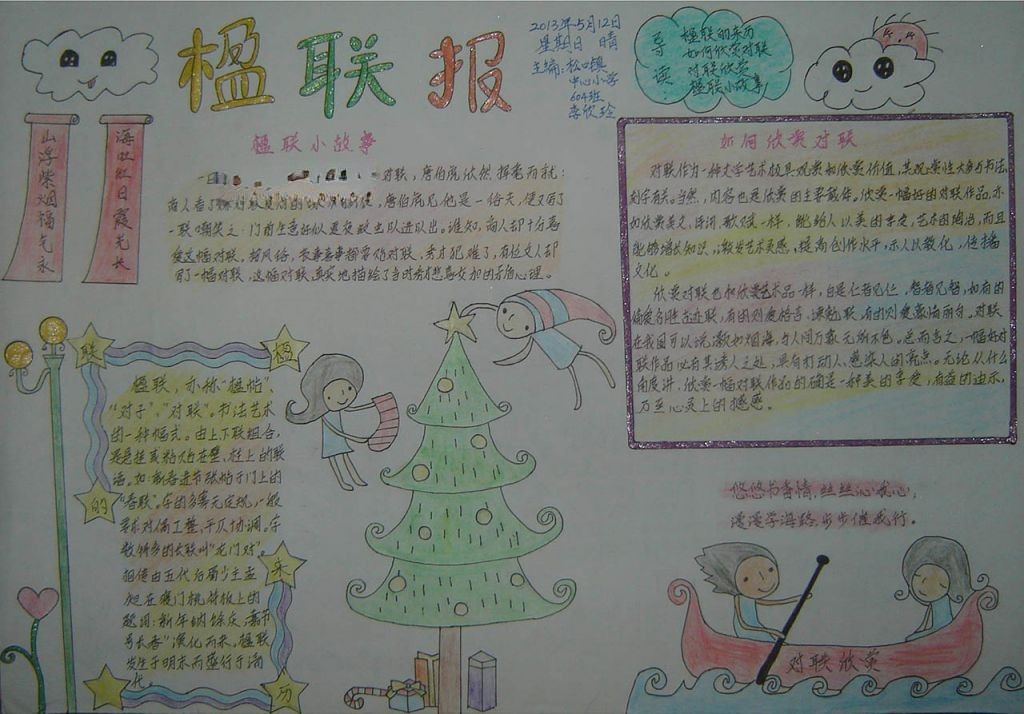 楹联报
2013年5月12日
星期日 晴
主编:松口镇
中心小学
604班
李欣玲
导读
楹联的来历
如何欣赏对联
对联欣赏
楹联小故事
山浮紫烟福光永
海吐红日霞光长
楹联小故事
对联,唐伯虎欣然挥毫而就:
商人看了
唐伯虎见他是一俗夫,便又写了
一联嘲笑之:门前生意好似夏夜蚊虫队进队出。谁知,商人却十分喜
爱这幅对联。
写了一幅对联,这幅对联真实地描绘了当时
心理。
如何欣赏对联
对联作为一种文学艺术极具观赏和欣赏价值,其观赏性大多与书法
刻字有关。当然,内容也是欣赏的主要载体。欣赏一幅好的对联作品,亦
如欣赏美文、诗词、歌赋一样,能给人以美的享受,艺术的陶冶,而且
能够增长知识,激发艺术灵感,提高创作水平,示人以教化,传播
文化。
欣赏对联也和欣赏艺术品一样,自是仁者见仁,智者见智,如有的
偏爱名胜古迹联,有的则爱格言、课勉联,有的则爱
对联
在我国可以说浩如烟海,与人间万象无所不包。总而言之,一幅好对
联作品必有其诱人之处,具有打动人、感染人的亮点。无论从什么
角度讲,欣赏一幅对联作品的确是一种美的享受,有益的启示,
乃至心灵上的撼感。
楹联的来历
楹联,亦称“楹帖”、
“对子”、“对联”。书法艺术
的一种幅式。由上下联组合,
是悬挂或粘贴在壁、柱上的联
语。如:新春佳节张贴于门上的
“春联”。字的多寡无定规,一般
要求对偶工整,平仄协调。字
数特多的长联叫“龙门对”。
相传由五代后蜀少主孟
昶在寝门桃符板上的
题词:“新年纳馀庆,嘉节
号长春”演化而来。楹联
发生于明末而盛行于清
代。
悠悠书香情,丝丝沁我心,
漫漫学海路,步步催我行。
对联欣赏